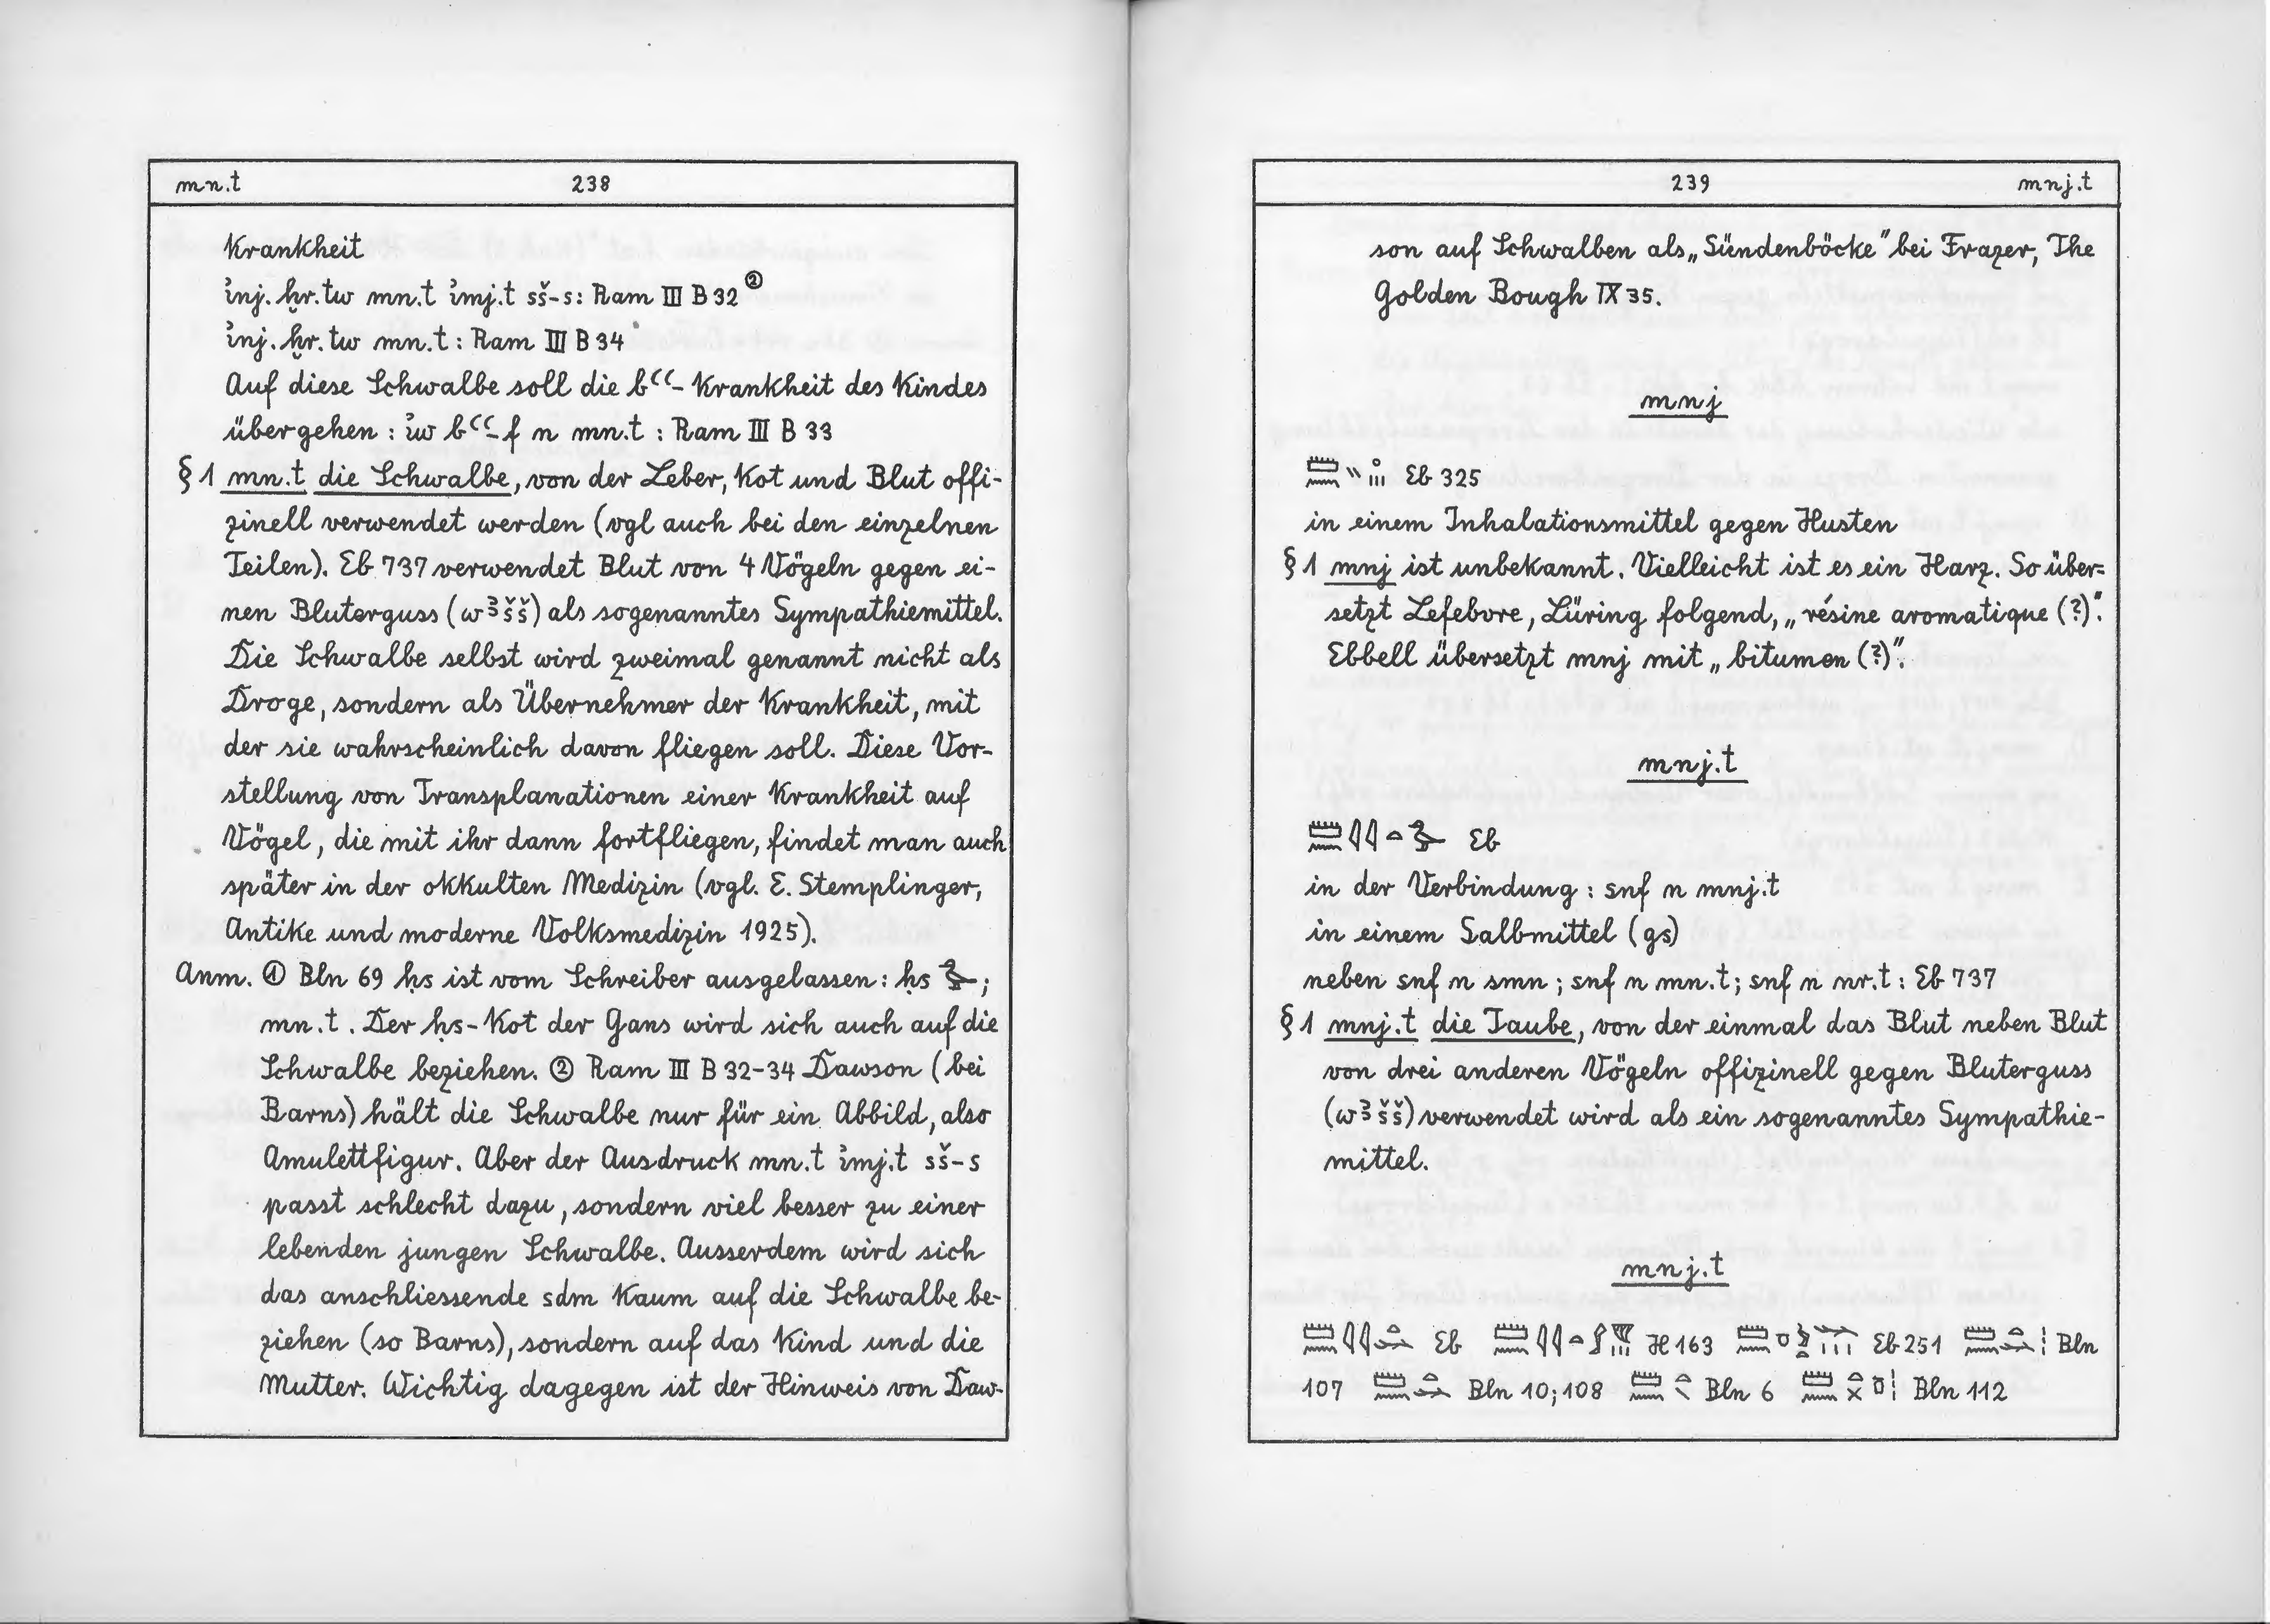 mn.t 238
Krankheit
ỉnj.ḫr.tw mn.t ỉmj.t sš-s: Ram III B 32 ②
ỉnj.ḫr.tw mn.t : Ram III B 34
Auf diese Schwalbe soll die bꜥꜥ-Krankheit des Kindes
übergehen : ỉw bꜥꜥ-f n mn.t : Ram III B 33
§ 1 mn.t die Schwalbe, von der Leber, Kot und Blut offi-
zinell verwendet werden (vgl auch bei den einzelnen
Teilen). Eb 737 verwendet Blut von 4 Vögeln gegen ei-
nen Bluterguss (wꜣšš) als sogenanntes Sympathiemittel.
Die Schwalbe selbst wird zweimal genannt nicht als
Droge, sondern als Übernehmer der Krankheit, mit
der sie wahrscheinlich davon fliegen soll. Diese Vor-
stellung von Transplanationen einer Krankheit auf
Vögel, die mit ihr dann fortfliegen, findet man auch
später in der okkulten Medizin (vgl. E. Stemplinger,
Antike und moderne Volksmedizin 1925).
Anm. ① Bln 69 ḥs ist vom Schreiber ausgelassen : ḥs ;
mn.t. Der ḥs-Kot der Gans wird sich auch auf die
Schwalbe beziehen. ② Ram III B 32-34 Dawson (bei
Barns) hält die Schwalbe nur für ein Abbild, also
Amulettfigur. Aber der Ausdruck mn.t ỉmj.t sš-s
passt schlecht dazu, sondern viel besser zu einer
lebenden jungen Schwalbe. Ausserdem wird sich
das anschliessende sdm kaum auf die Schwalbe be-
ziehen (so Barns), sondern auf das Kind und die
Mutter. Wichtig dagegen ist der Hinweis von Daw-
239 mnj.t
son auf Schwalben als „Sündenböcke" bei Frazer, The
Golden Bough IX 35.
mnj
Eb 325
in einem Inhalationsmittel gegen Husten
§ 1 mnj ist unbekannt. Vielleicht ist es ein Harz. So über=
setzt Lefebvre, Lüring folgend, „résine aromatique (?)".
Ebbell übersetzt mnj mit „bitumen (?)".
mnj.t
Eb
in der Verbindung : snf n mnj.t
in einem Salbmittel (gs)
neben snf n smn ; snf n mn.t ; snf n nr.t : Eb 737
§ 1 mnj.t die Taube, von der einmal das Blut neben Blut
von drei anderen Vögeln offizinell gegen Bluterguss
(wꜣšš) verwendet wird als ein sogenanntes Sympathie-
mittel.
mnj.t
Eb H 163 Eb 251 Bln
107 Bln 10; 108 Bln 6 Bln 112